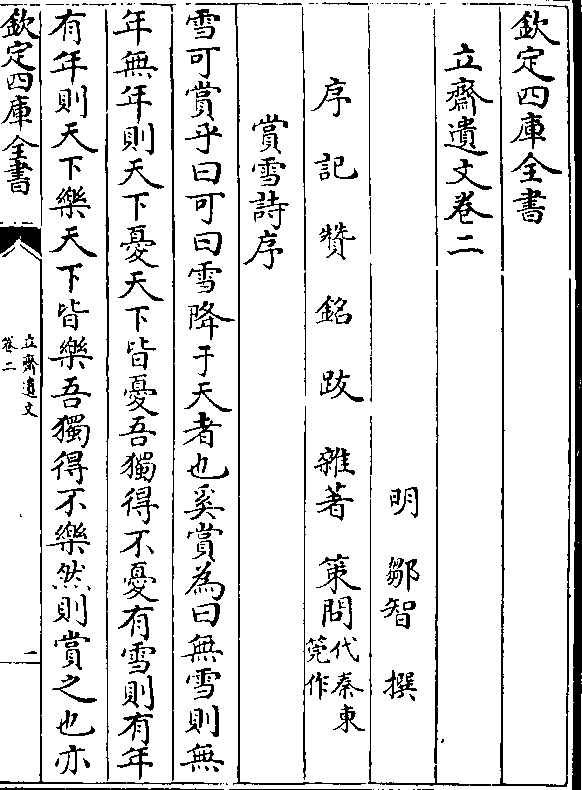 欽定四庫全書
立齋遺文卷二
明 鄒智 撰
序 記 贊 銘 跋 雜著 策問代秦東莞作
賞雪詩序
雪可賞乎曰可曰雪降于天者也奚賞為曰無雪則無
年無年則天下憂天下皆憂吾獨得不憂有雪則有年
有年則天下樂天下皆樂吾獨得不樂然則賞之也亦
欽定四庫全書
立齋遺文
卷二
一